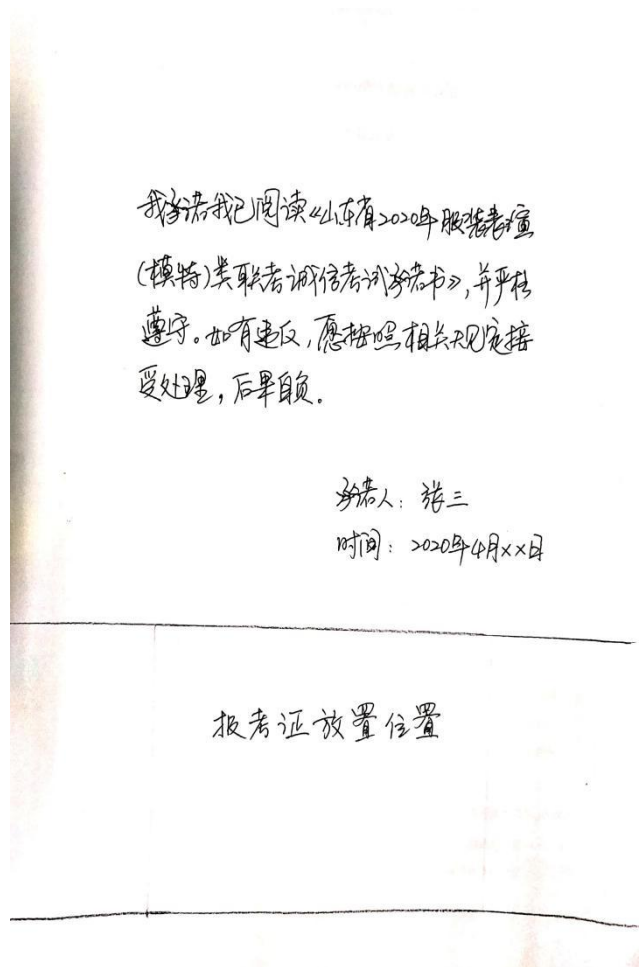 我承诺我已阅读《山东省2020年服装表演
(模特)类联考诚信考试承诺书》,并严格
遵守。如有违反,愿按照相关规定接
受处理,后果自负。
承诺人:张三
时间:2020年4月××日
报考证放置位置